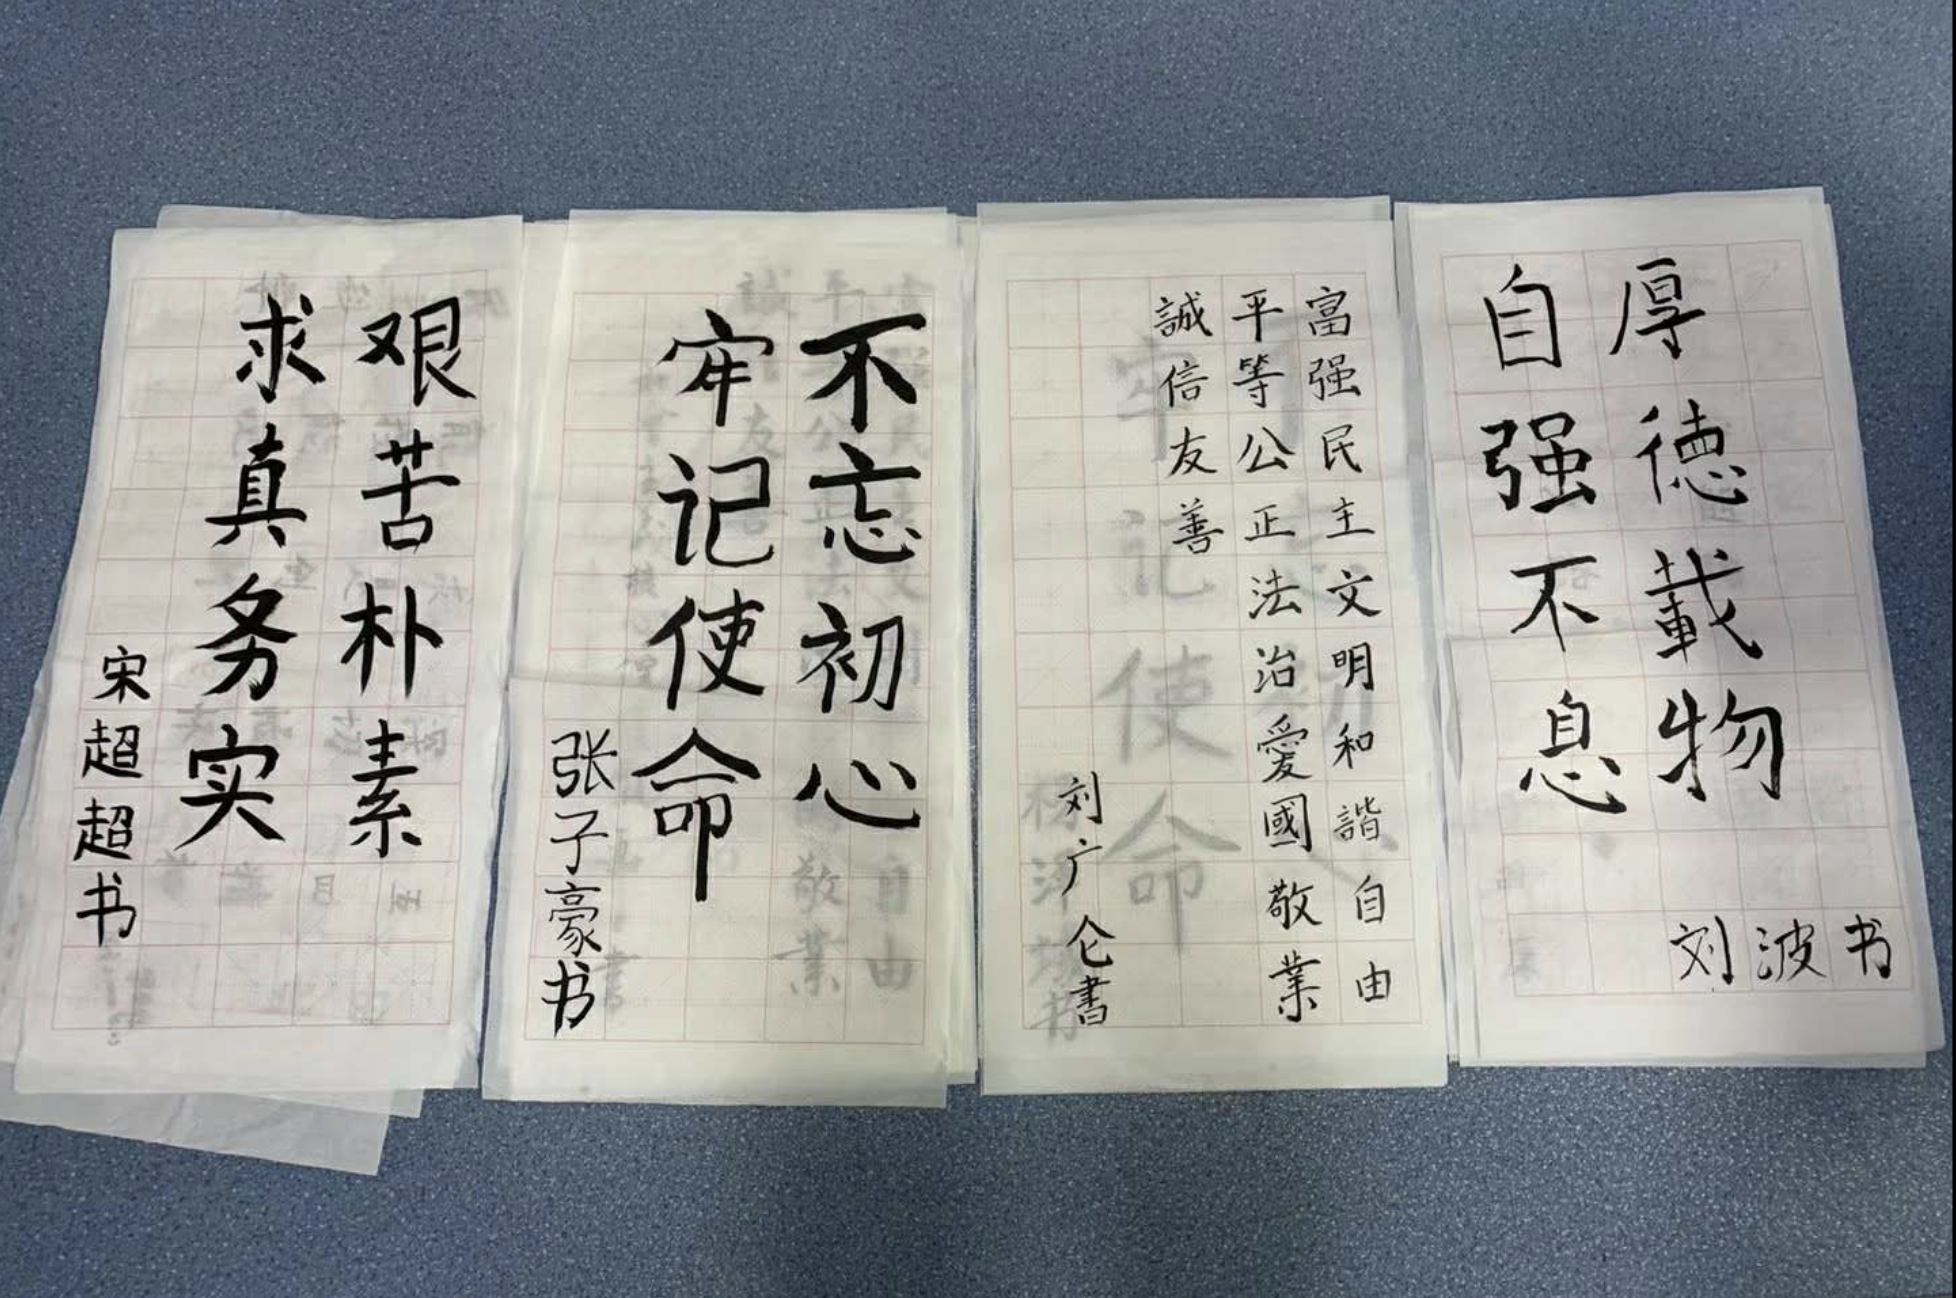 厚德載物
自强不息
刘波书
富强民主文明和諧自由
平等公正法治愛國敬業
誠信友善
刘广仑書
不忘初心
牢记使命
张子豪书
艰苦朴素
求真务实
宋超超书